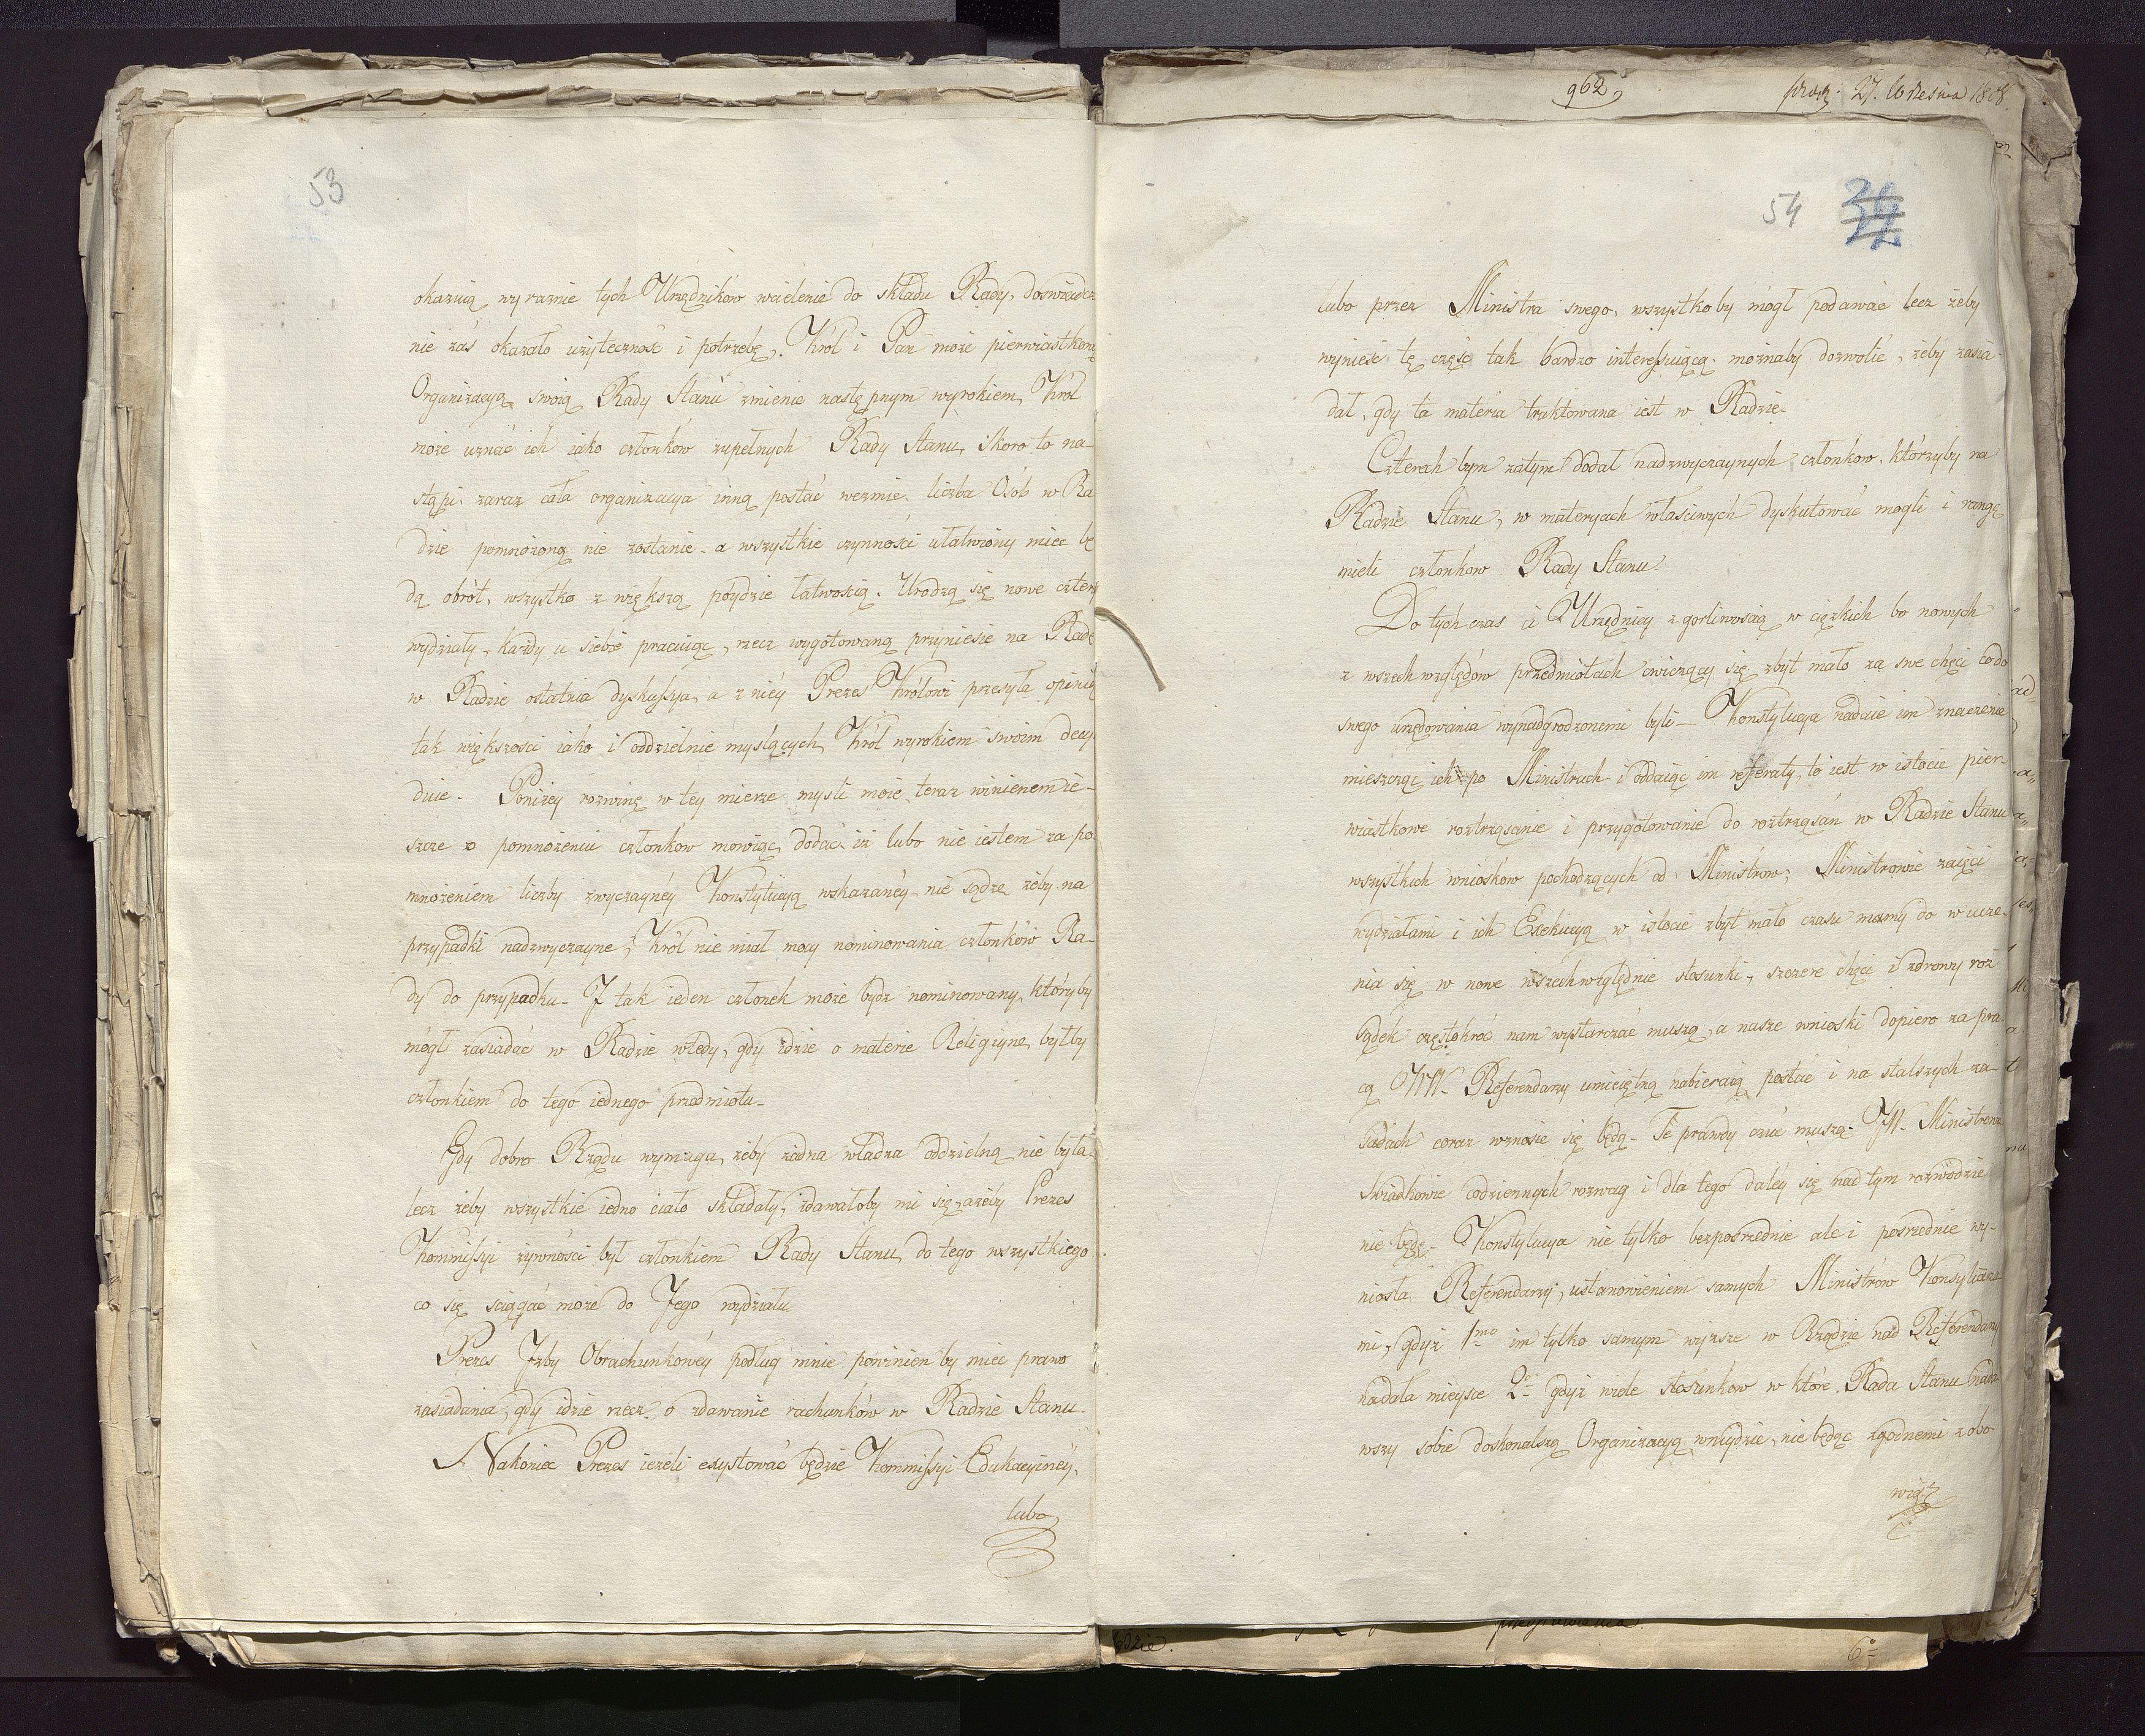 53
okazuią wyraznie tych Urzędników wcielenie do składu Rady, doswiadcze
nie zaś okazało użyteczność i potrzebę. Król i Pan może pierwiastkową
Organizacyą swoią Rady Stanu zmienić następnym wyrokiem, Król
może uznać ich iako członków zupełnych Rady Stanu, skoro to na-
stąpi zaraz cała organizacya inną postać wezmie, liczba Osób w Ra
dzie pomnożoną nie zostanie - a wszystkie czynności ułatwiony mieć bę
dą obrót, wszystko z większą póydzie łatwością. Urodzą się nowe cztery
wydziały, każdy u siebie pracuiąc, rzecz wygotowaną przyniesie na Radę
w Radzie ostatnia dyskussya, a z niéy Prezes Królowi przesyła opinią
tak większości iako i oddzielnie myślących, Król wyrokiem swoim decy
duie. Poniżey rozwinę w tey mierze myśli moie, teraz winienem ie-
szcze o pomnożeniu członków mówiąc, dodać iż lubo nie iestem za po
mnożeniem liczby zwyczaynéy Konstytucyą wskazanéy - nie sądzę żeby na
przypadki nadzwyczayne, Król nie miał mocy nominowania członków Ra-
dy do przypadku - I tak ieden członek może bydz nominowany, któryby
mógł zasiadać w Radzie wtedy, gdy idzie o materie Religiyne, byłby
członkiem do tego iednego przedmiotu -
Gdy dobro Rządu wymaga, żeby żadna władza oddzielną nie była
lecz żeby wszystkie iedno ciało składały, zdawałoby mi się, ażeby Prezes
Kommissyi żywności był członkiem Rady Stanu do tego wszystkiego
co się sciągać może do Jego wydziału
Prezes Jzby Obrachunkowéy podług mnie powinien by mieć prawo
zasiadania, gdy idzie rzecz o zdawanie rachunków w Radzie Stanu -
Nakoniec Prezes ieżeli exystować będzie Kommissyi Edukacyinéy,
lubo
962
27. Września 1808
54
lubo przez Ministra swego, wszystkoby mógł podawać lecz żeby
wynieść tę część tak bardzo interessuiącą możnaby dozwolić, żeby zasia
dał, gdy ta materia traktowana iest w Radzie -
Czterech bym zatym dodał nadzwyczaynych członków, którzyby na
Radzie Stanu, w materyach właściwych dyskutować mogli i rangę
mieli członków Rady Stanu
Do tych czas ci Urzędnicy z gorliwością w cięzkich bo nowych
z wszech względów przedmiotach cwiczący się zbyt mało za swe chęci co do
swego urzędowania wynadgrodzonemi byli - Konstytucya nadaie im znaczenie
mieszcząc ich po Ministrach i oddaiąc im referaty, to iest w istocie pier-
wiastkowe roztrząsanie i przygotowanie do roztrząsań w Radzie Stanu
wszystkich wnioskow pochodzących od Ministrów; Ministrowie zaięci
wydziałami i ich Exekucyą w istocie zbyt mało czasu mamy do wucze-
nia się w nowe wszechwzględnie stosunki, szczere chęci i zdrowy roz
sądek częstokroć nam wystarczać muszą, a nasze wnioski dopiero za pra
cą JWW. Referendarzy umieiętną nabieraią postać i na stalszych za-
sadach coraz wznosić się będą - Te prawdy czuć muszą JW. Ministrowie
Swiadkowie codziennych rozwag i dla tego daléy się nad tym rozwodzić
nie będę - Konstytucya nie tylko bezpośrednie ale i pośrednie wy-
niosła Referendarzy, ustanowieniem samych Ministrów Konsyliarza
mi, gdyż 1mo im tylko samym wyższe w Rządzie nad Referendarzy
nadała mieysce 2e gdyż wiele stosunkow w które Rada Stanu nadaw
wszy sobie doskonalszą Organizacyą wniydzie, nie będąc zgodnemi z obo
wiąz
6°